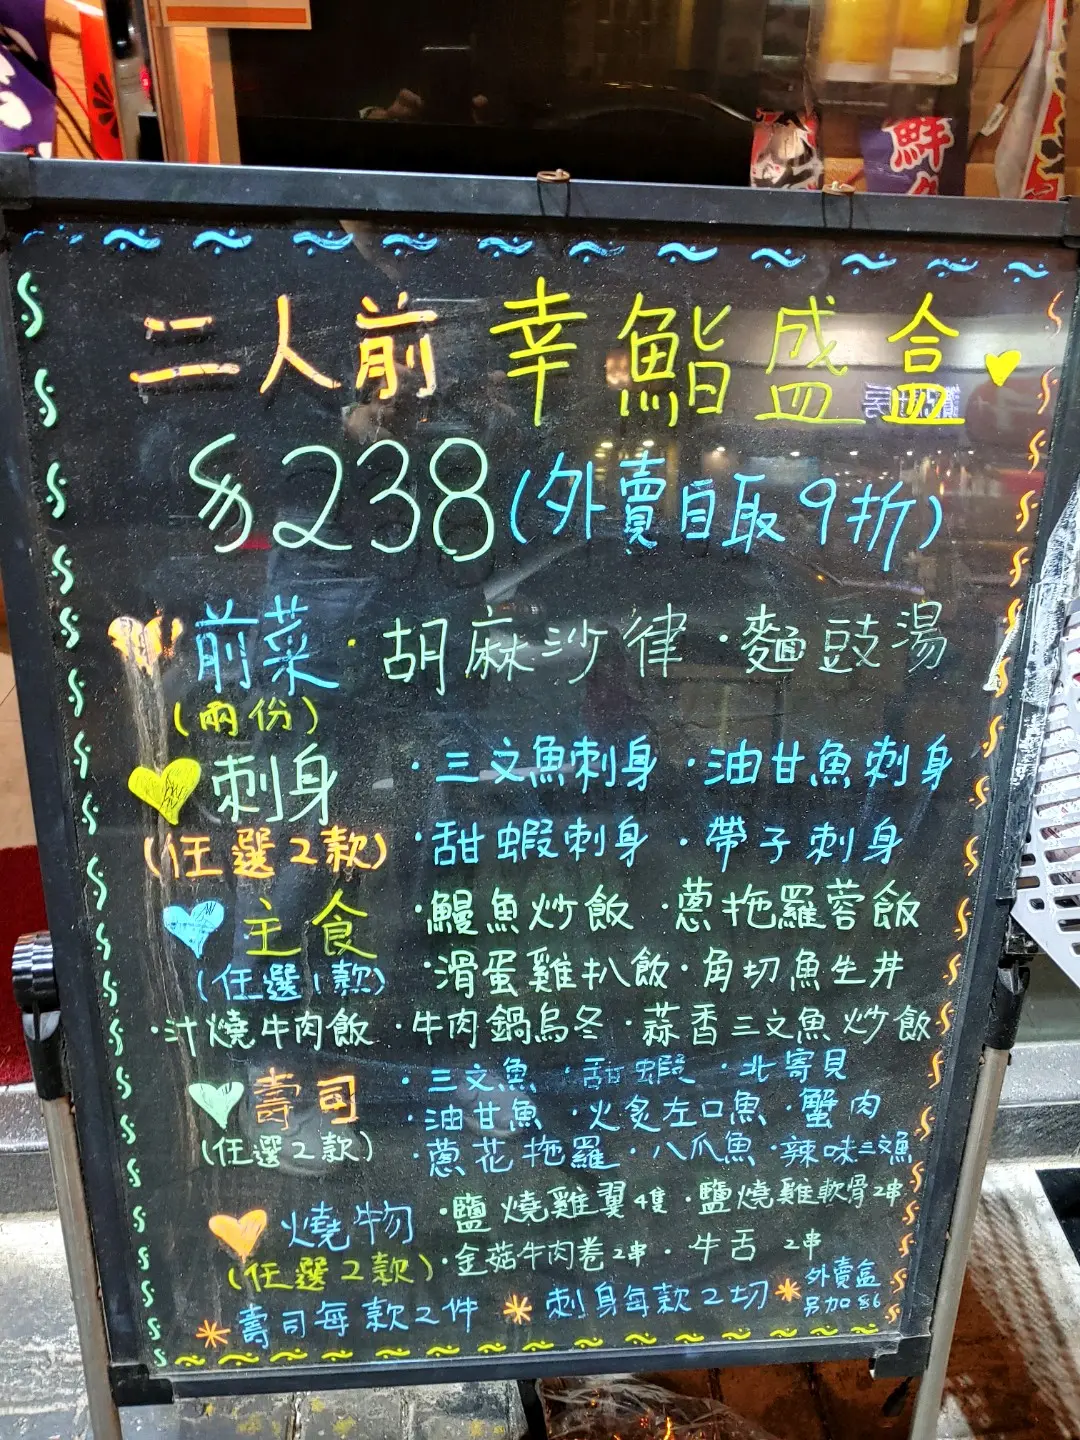 鮮
二人前 幸鮨盛盒
$238(外賣自取9折)
前菜·胡麻沙律·麵豉湯
(兩份)
刺身 ·三文魚刺身 ·油甘魚刺身
(任選2款) ·甜蝦刺身 ·帶子刺身
主食 ·鰻魚炒飯 ·蔥拖羅蓉飯
(任選1款) ·滑蛋雞扒飯·角切魚生丼
·汁燒牛肉飯 ·牛肉鍋烏冬 ·蒜香三文魚炒飯
壽司 ·三文魚 ·甜蝦 ·北寄貝
·油甘魚 ·火炙左口魚 ·蟹肉
(任選2款) ·蔥花拖羅·八爪魚·辣味三文魚
燒物 ·鹽燒雞翼4隻 ·鹽燒雞軟骨2串
(任選2款) ·金菇牛肉卷2串 ·牛舌 2串
*壽司每款2件 *刺身每款2切 *外賣盒
另加$6